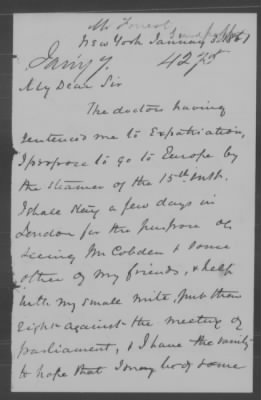 New York January
Jan'y 7. 4275
My Dear Sir
The doctors having
sentenced me to Expatriation,
I propose to go to Europe by
the steamer of the 15th inst.
I shall stay a few days in
London for the purpose of
seeing Mr Cobden & some
other of my friends, & help
with my small mite, put them
right against the meeting of
parliament, & I have the vanity
to hope that I may be of some